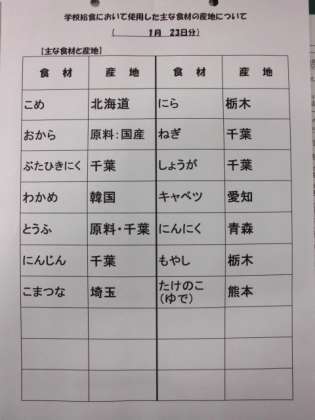 学校給食において使用した主な食材の産地について
(　1月　23日分)
[主な食材と産地]
食 材　産 地　食 材　産 地
こめ　北海道　にら　栃木
おから　原料：国産　ねぎ　千葉
ぶたひきにく　千葉　しょうが　千葉
わかめ　韓国　キャベツ　愛知
とうふ　原料・千葉　にんにく　青森
にんじん　千葉　もやし　栃木
こまつな　埼玉　たけのこ　熊本
(ゆで)